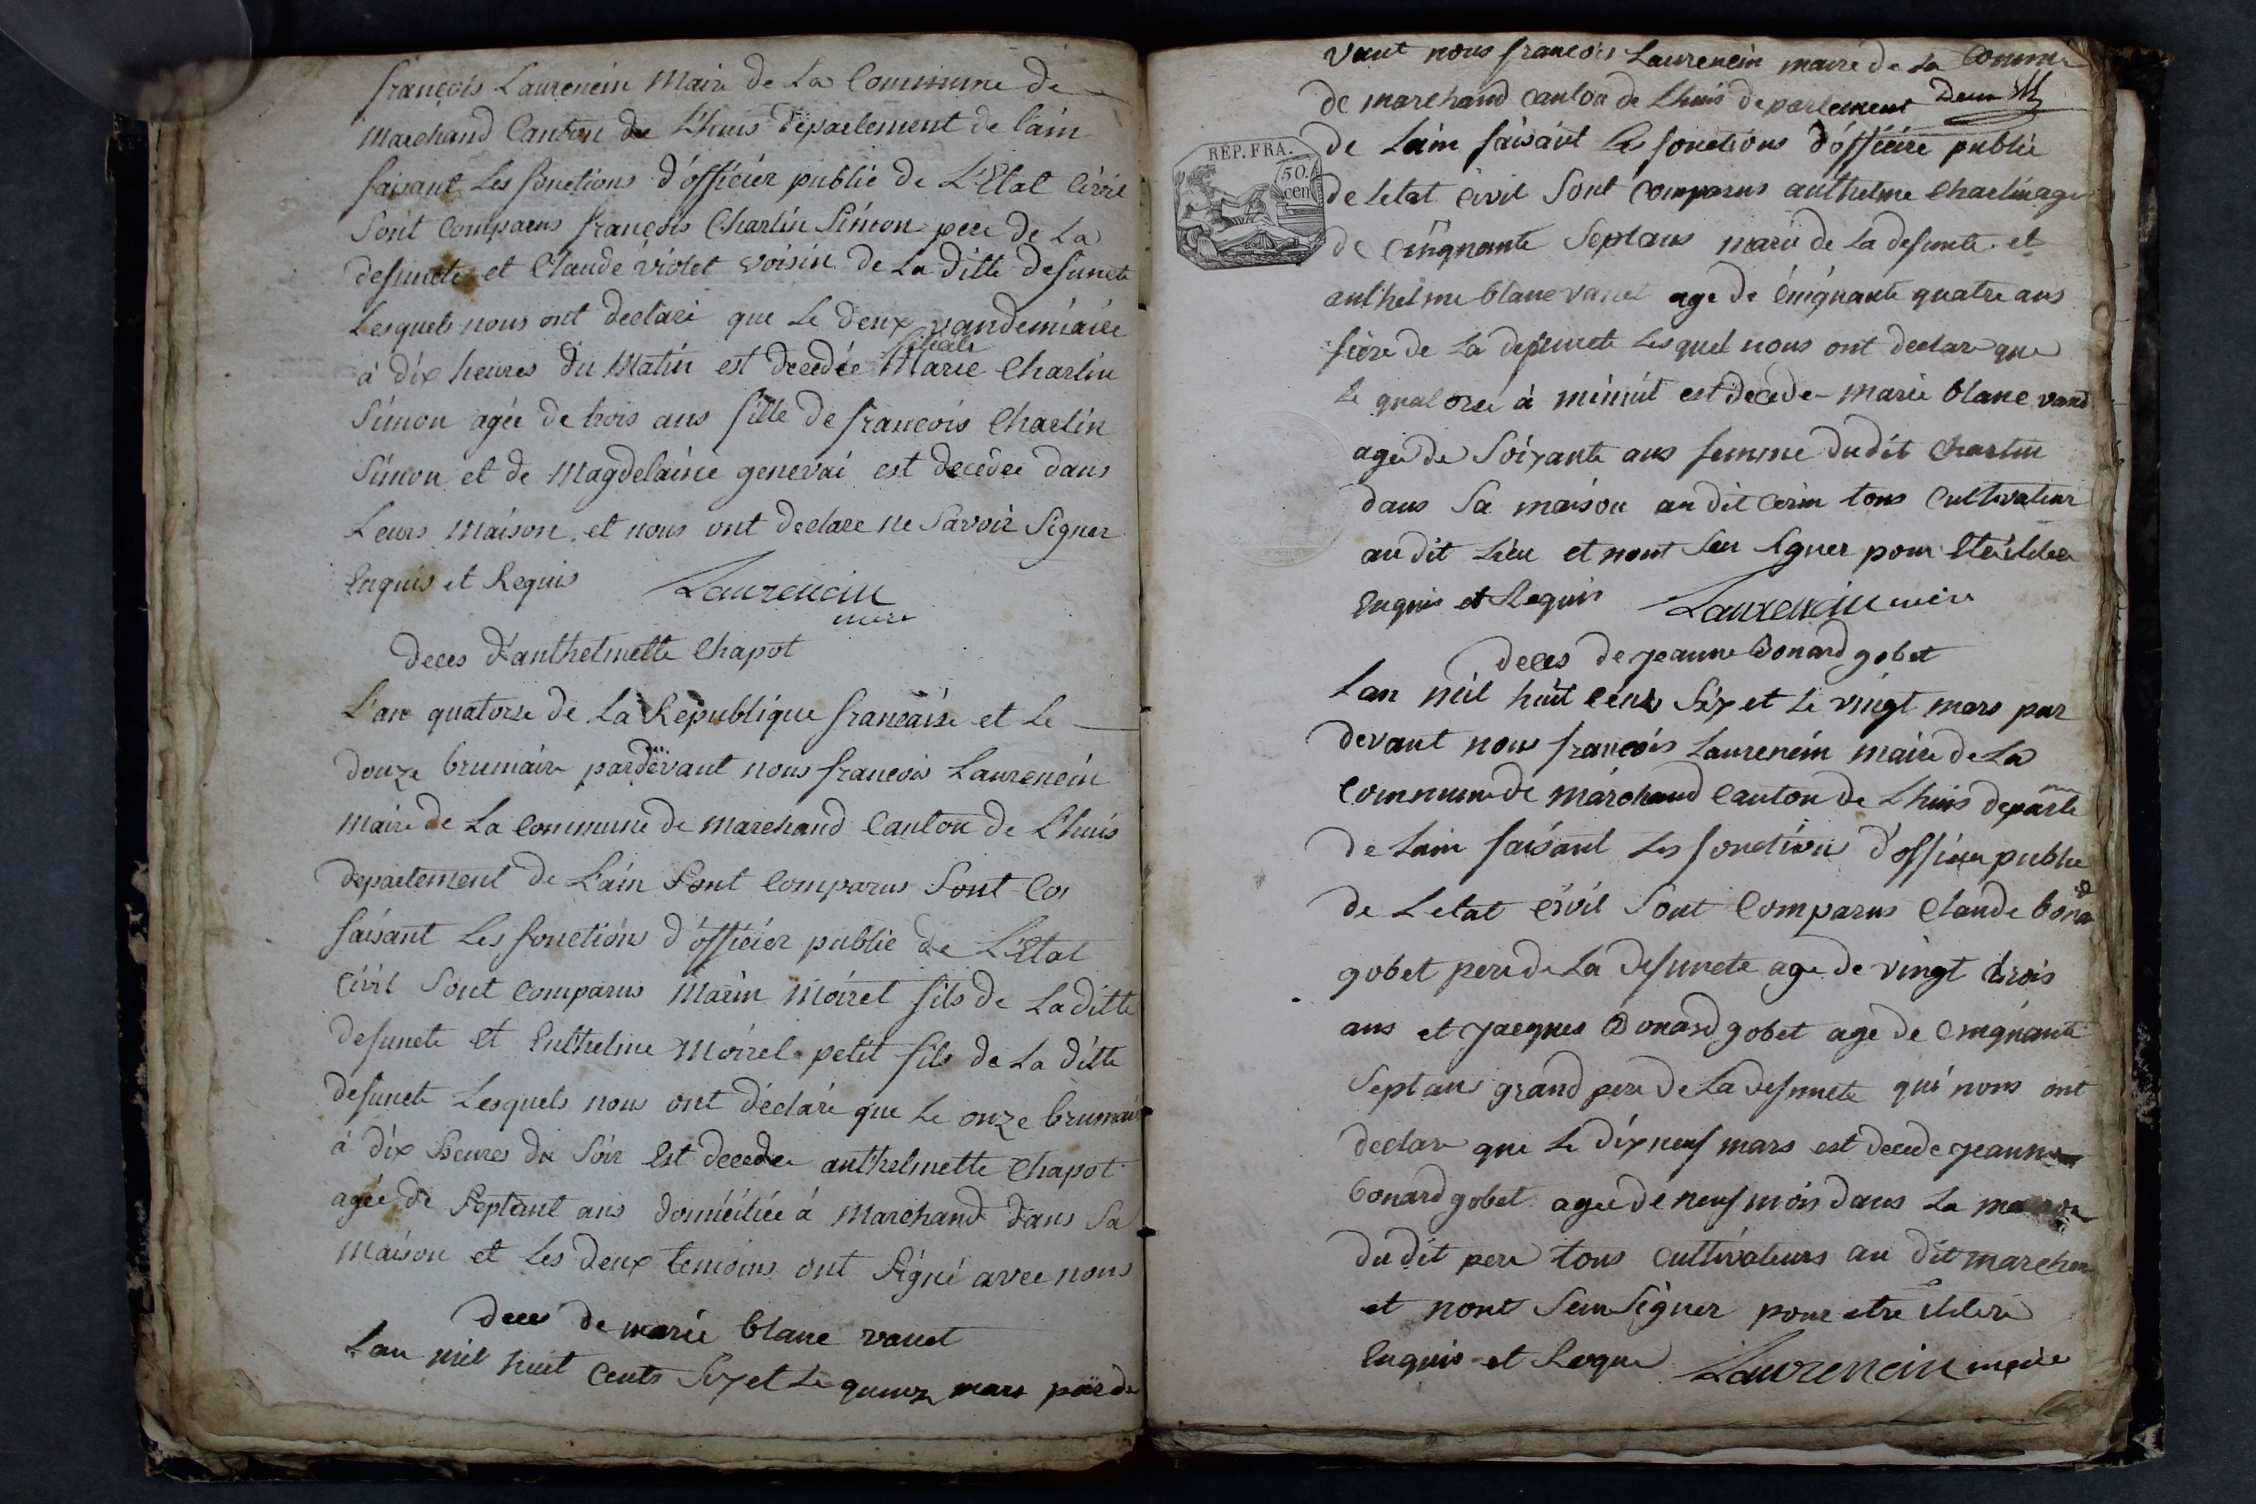 françois Laurencin Maire de La Commune de
Marchand Canton de Lhuis departement de lain
faisant Les fonctions d'officier public de L'Etat Civil
Sont Comparus françois Charlin Simon pere de La
defuncte et Claude violet voisin de La ditte defuncte
Lesquels nous ont declaré que Le deux vandemiaire
à dix heures du Matin est decedée Marie Charlin
Simon agée de trois ans fille de françois Charlin
Simon et de Magdelaine genevai est decedée dans
Leurs Maison et nous ont declare ne Savoir Signer
Enquis et Requis Laurencin
maire
deces d'anthelmette Chapot
L'an quatorze de La Republique française et Le
douze brumaire pardevant nous françois Laurencin
Maire de La Commune de Marchand Canton de Lhuis
departement de L'ain Sont Comparus Sont Co
faisant Les fonctions d'officier public de L'Etat
Civil Sont Comparus Marin Moiret fils de La ditte
defuncte et Enthelme Moiret petit fils de La ditte
defuncte Lesquels nous ont déclaré que Le onze brumai
à dix heures du Soir Est decedee anthelmette Chapot
agée de Septant ans domiciliée à Marchand dans Sa
Maison et Les deux temoins ont Signé avec nous
deces de marie blanc vanet
Lan mil huit Cents Six et Le quinze mars parde
vant nous françois Laurencin maire de La Comm
de marchand canton de Lhuis departement Deux
REP. FRA.
50. cen
de Lain faisant Les fonctions d'officier public
de Letat civil Sont Comparus anthelme Charlin age
de Cinquante Sept ans marie de La defuncte et
anthelme blanc vanet age de Cinquante quatre ans
frere de La defuncte Lesquel nous ont declare que
Le quatorze à minuit est decede marie blanc vanet
agee de Soixante ans femme dudit Charlin
dans Sa maison au dit Cerin tous Cultivateur
au dit Lieu et nont Seu Signer pour
Enquis et Requis Laurencin maire
deces de jeanne Bonard gobet
Lan mil huit Cents Six et Le vingt mars par
devant nous françois Laurencin maire de La
Commune de marchand Canton de Lhuis departe
de Lain faisant Les fonctions d'officier public
de Letat Civil Sont Comparus Claude bona
gobet pere de La defuncte age de vingt trois
ans et jacques Bonard gobet age de Cinquante
Sept ans grand pere de La defuncte qui nous ont
declare que Le dix neuf mars est decede jeanne
bonard gobet agee de neuf mois dans La maison
du dit pere tous cultivateurs au dit marchan
et nont Seu Signer pour etre
Enquis et Requi Laurencin maire